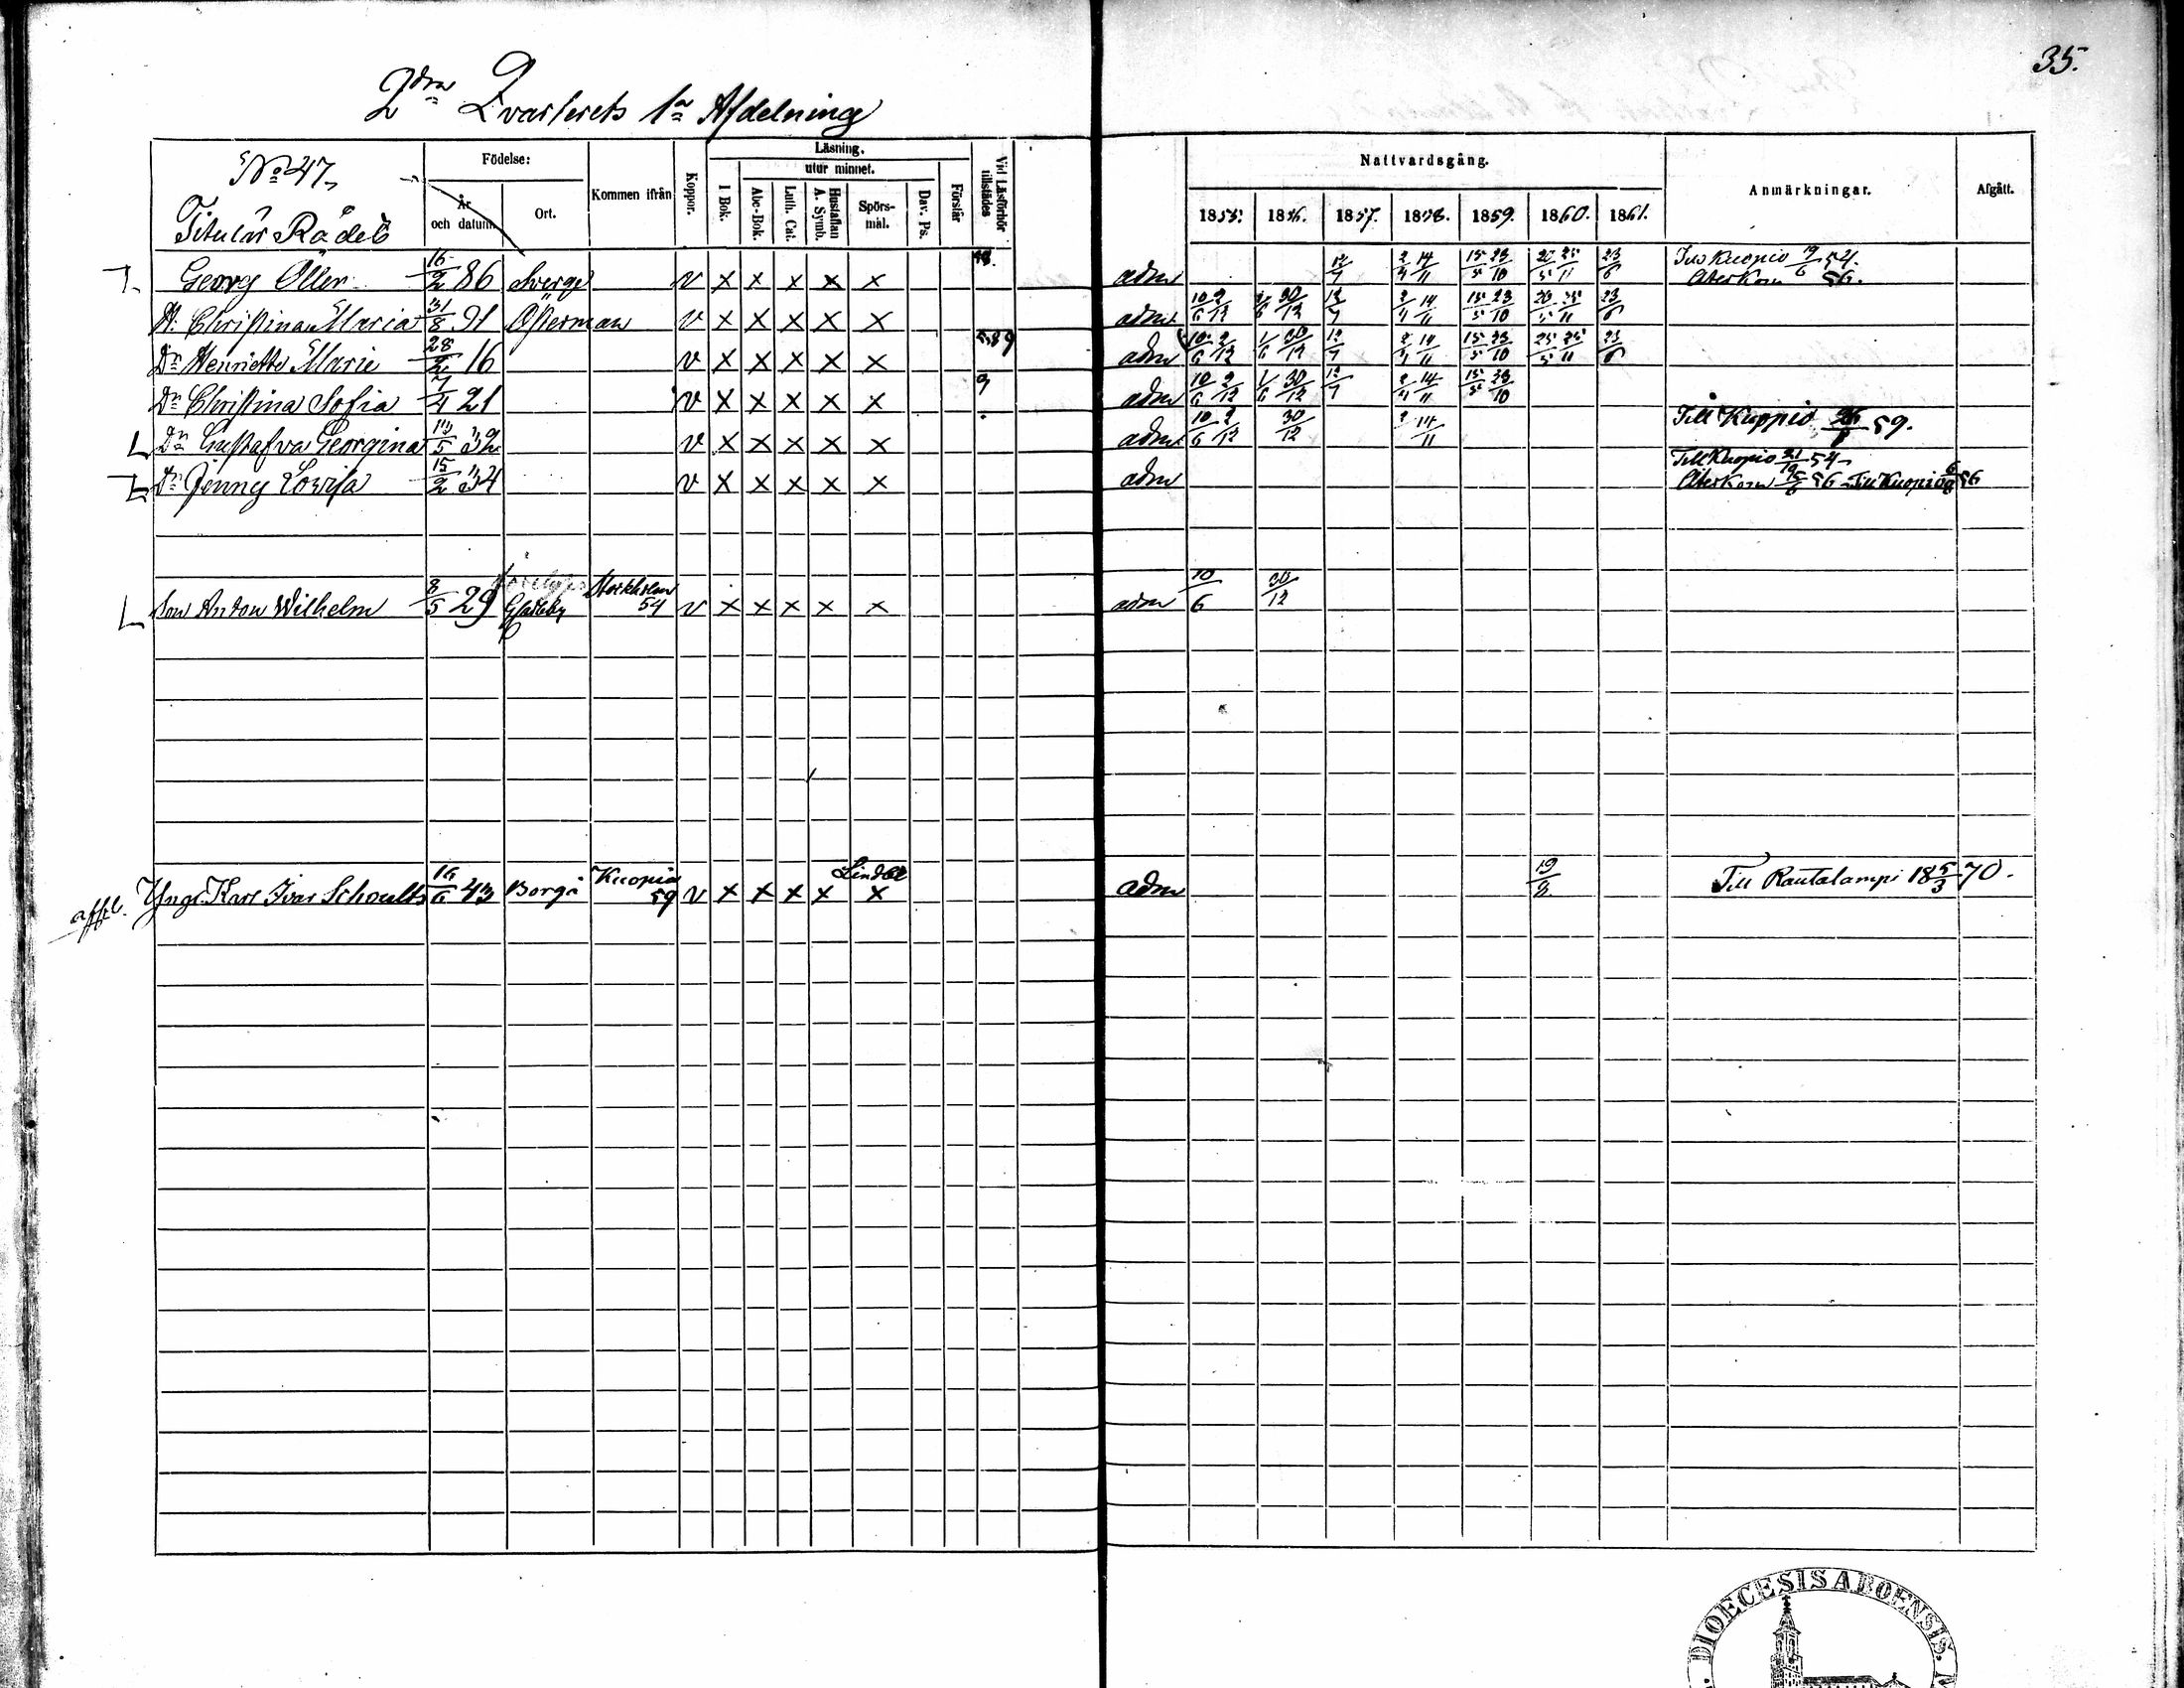 35.
2dra Qvarterets 1a Afdelning
No 47,
Titulär Rådet
Födelse:
År och datum.
Ort.
Kommen ifrån
Koppor.
Läsning.
utur minnet.
I Bok.
Abc-Bok.
Luth. Cat.
Hustaflan A. Symb.
Spörs-mål.
Dav. Ps.
Förstår
Vid Läsförhör tillstädes
Nattvardsgång.
1855. 1856. 1857. 1858. 1859. 1860. 1861.
Anmärkningar.
Afgått.
Georg Öller 16/2 86 Sverge v x x x x x adm 12/7 14/11 15/5 23/10 25/11 23/6 Till Kuopio 19/6 54.
Återkom 56.
H. Christina Maria 31/8 91 Österman v x x x x x adm 10/6 2/12 30/12 12/7 14/11 15/5 23/10 25/11 23/6
Dr Henriette Marie 28/2 16 v x x x x x 589 adm 10/6 2/12 1/6 30/12 12/7 14/11 15/5 23/10 25/5 25/11 23/6
Dr Christina Sofia 7/4 21 v x x x x x 9 adm 10/6 2/12 1/6 30/12 12/7 14/11 15/5 23/10
L Dr Gustafva Georgina 32 v x x x x x adm 10/6 2/12 30/12 14/11 Till Kuopio 59.
Dr Jenny Lovisa 15/2 34 v x x x x x adm Till Kuopio 54
Återkom 56 Till Kuopio 56
L Son Anton Wilhelm 8/5 29 Stockholm 54 v x x x x x adm 10/6 30/12
affl. Yngl. Karl Ivar Schoultz 43 Borgå Kuopio 59 v x x x x x adm 19/8 Till Rautalampi 18 5/3 70.
DIOECESIS ABOENSIS.